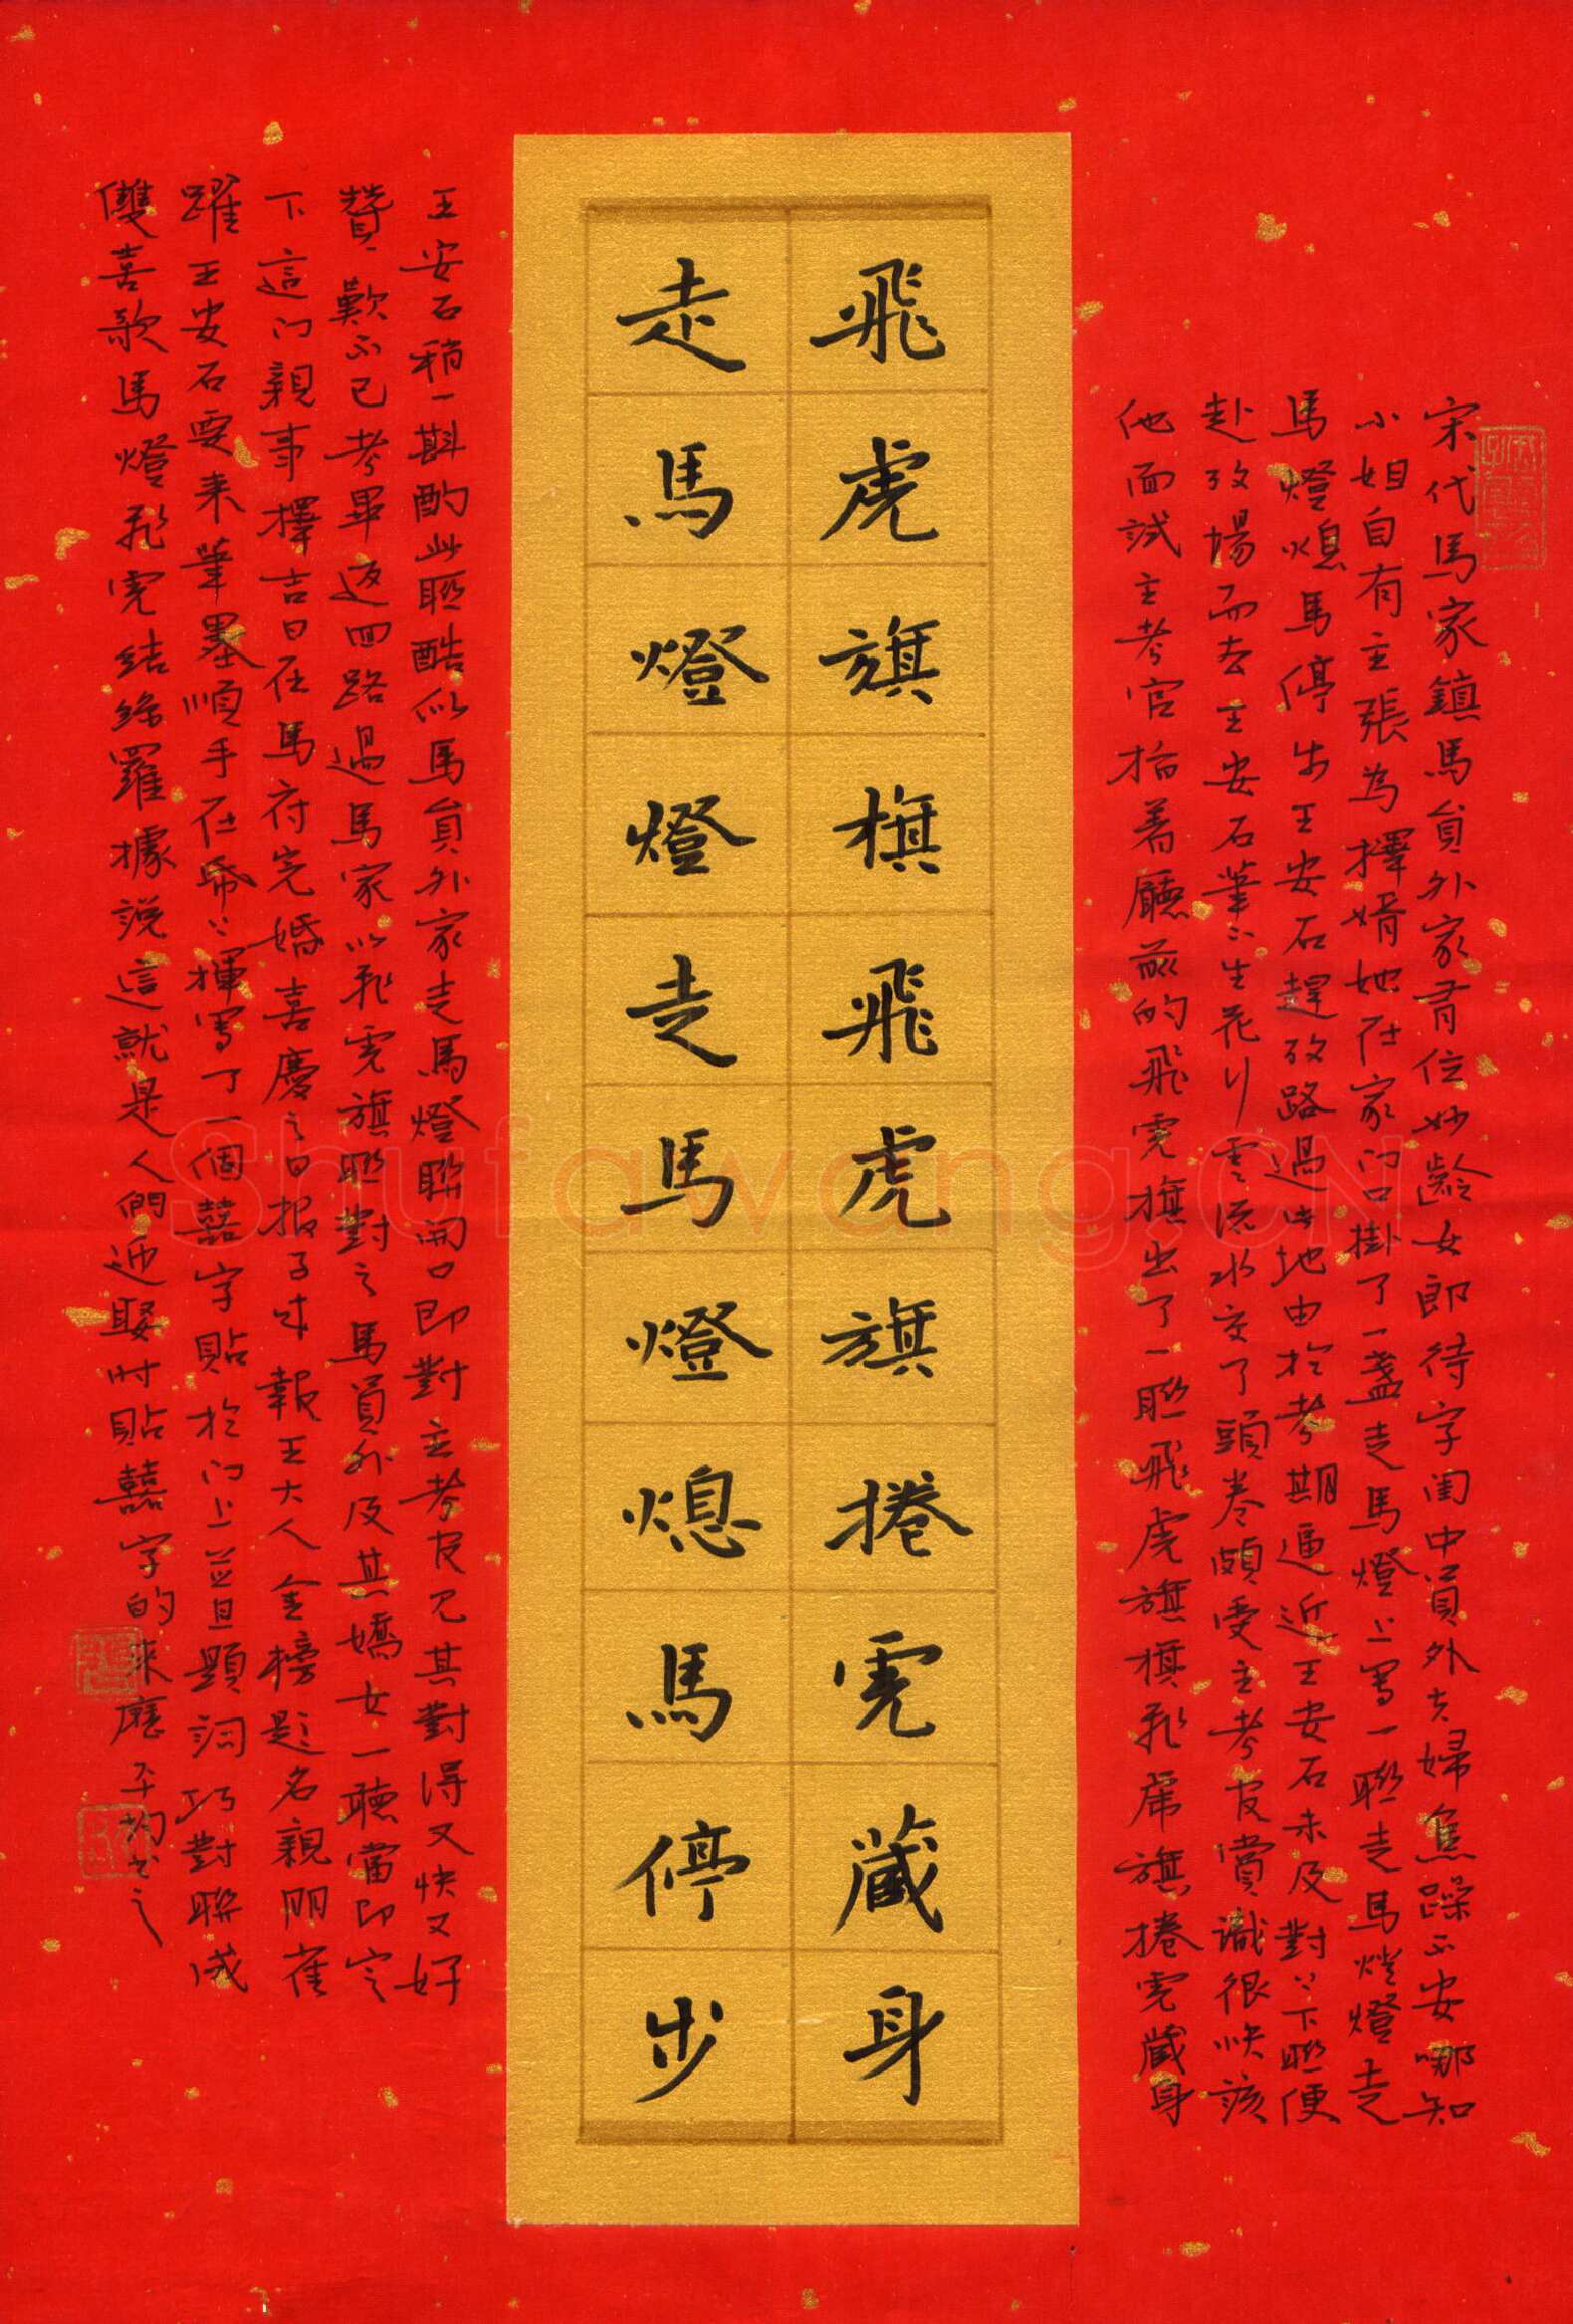 宋代馬家鎮馬員外家有位妙齡女郎待字閨中員外夫婦焦躁不安哪知
小姐自有主張為擇婿她在家门口掛了一盏走馬燈上写一聯走馬燈燈走
馬燈熄馬停步王安石趕考路過此地由於考期逼近王安石未及對出下聯便
赴考場而去王安石筆下生花行雲流水交了頭卷頗受主考官賞識很快該
他面試主考官指着廳前的飛虎旗出了一聯飛虎旗旗飛虎旗捲虎藏身
飛虎旗旗飛虎旗捲虎藏身
走馬燈燈走馬燈熄馬停步
王安石稍一斟酌此聯酷似馬員外家走馬燈聯開口即對主考官见其對得又快又好
贊歎不已考畢返回路過馬家以飛虎旗聯對之馬員外及其嬌女一聽當即定
下這门親事擇吉日在馬府完婚喜慶之日报子来報王大人金榜题名親朋雀
躍王安石要来筆墨順手在紙上揮写了一個囍字貼於门上並且題詞巧對聯成
雙喜歌馬燈飛虎結絲羅據説這就是人們迎娶时貼囍字的来歷
Shufawang.CN